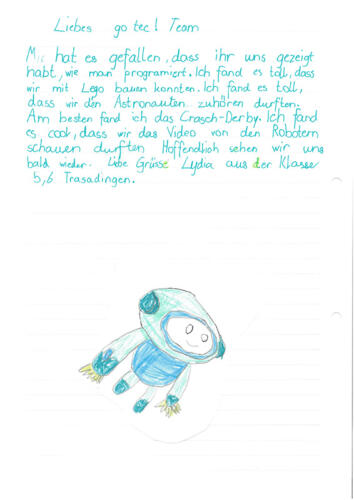 Liebes go tec! Team
Mir hat es gefallen, dass ihr uns gezeigt
habt, wie man programiert. Ich fand es toll, dass
wir mit Lego bauen konnten. Ich fand es toll,
dass wir den Astronauten zuhören durften.
Am besten fand ich das Crasch-Derby. Ich fand
es cool, dass wir das Video von den Robotern
schauen durften Hoffendlich sehen wir uns
bald wieder. Liebe Grüsse Lydia aus der Klasse
5,6 Trasadingen.